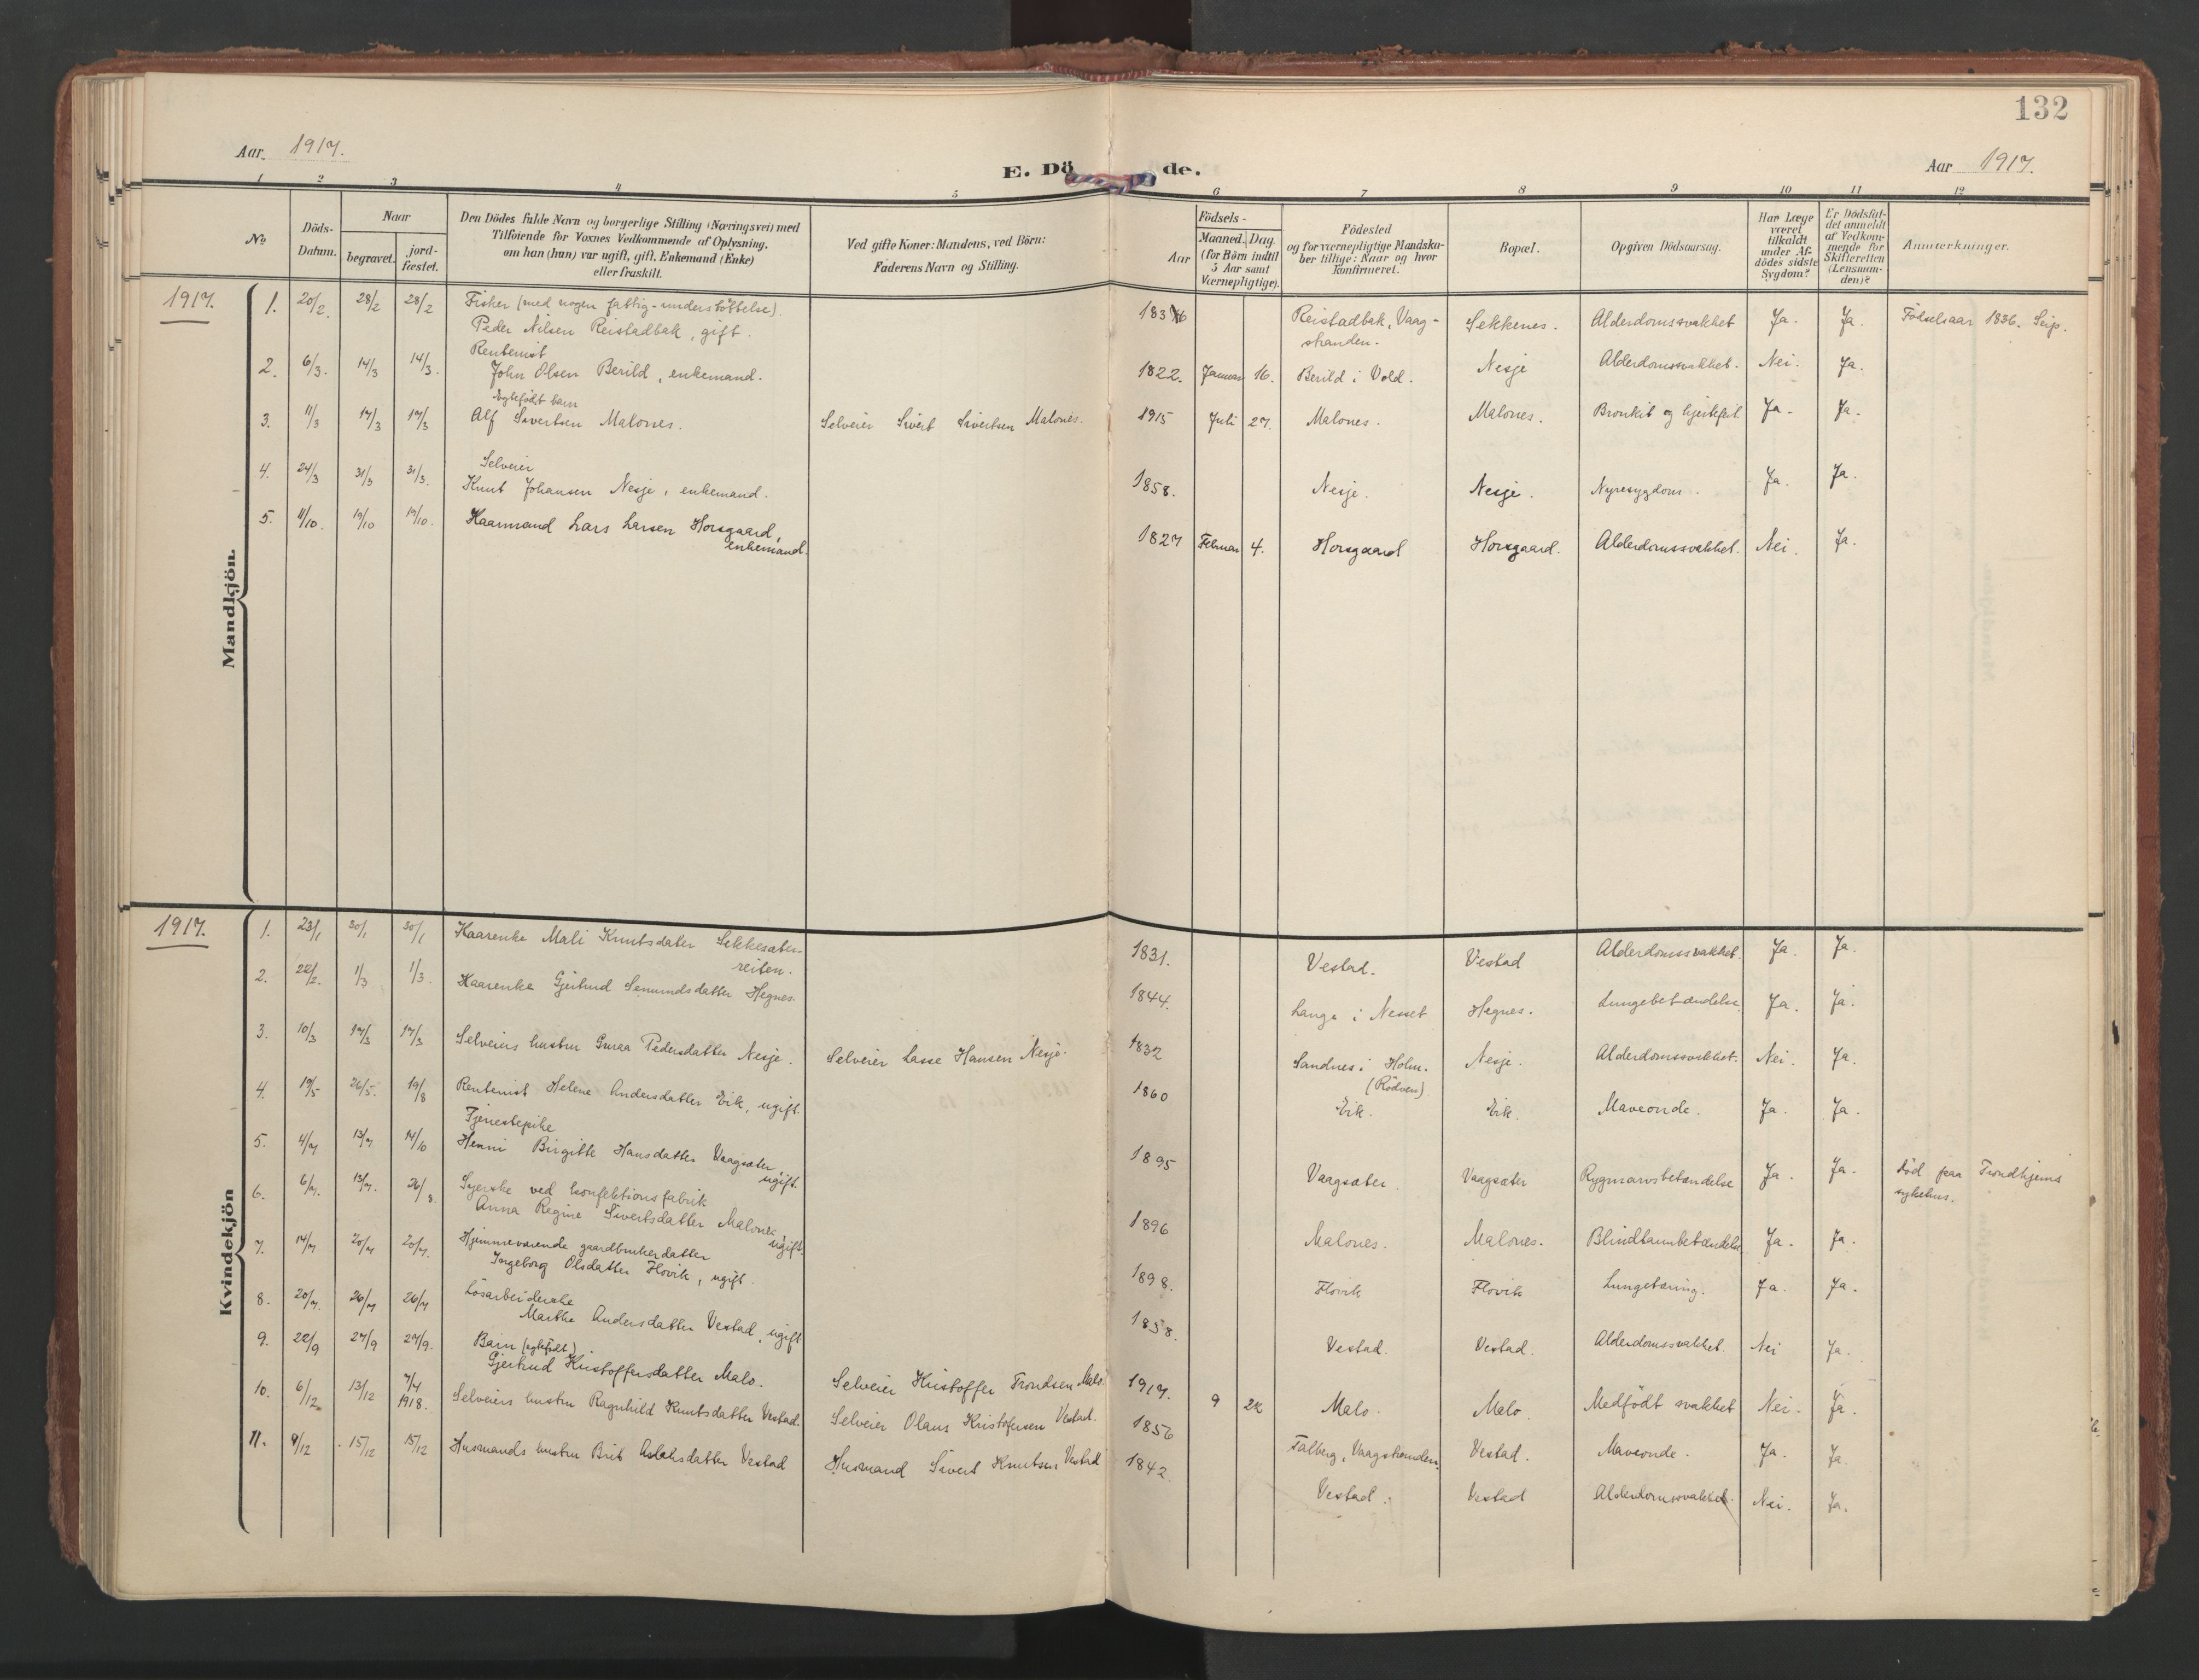 132
Aar 1917.
E. Dö de.
Aar 1917.
1 2 3 4 5 6 7 8 9 10 11 12
No
Döds-Datum.
Naar
begravet.
jord-fæstet.
Den Dödes fulde Navn og borgerlige Stilling (Næringsvei) med
Tilföiende for Voxnes Vedkommende af Oplysning,
om han (hun) var ugift, gift, Enkemand (Enke)
eller fraskilt.
Ved gifte Koner: Mandens, ved Börn:
Faderens Navn og Stilling.
Födsels-
Aar
Maaned. Dag.
(for Börn indtil
5 Aar samt
Værnepligtige).
Födested
og for værnepligtige Mandska-
ber tillige: Naar og hvor
konfirmeret.
Bopæl.
Opgiven Dödsaarsag.
Har Læge
været
tilkaldt
under Af-
dödes sidste
Sygdom?
Er Dödsfal-
det anmeldt
af Vedkom-
mende for
Skifteretten
(Lensman-
den)?
Anmærkninger.
Mandkjön.
1917.
1. 20/2. 28/2 28/2 Fisker (med nogen fattig-understöttelse).
Peder Nilsen Reistadbak, gift. 1836 Reistadbak, Vaag-
stranden. Sekkenes. Alderdomssvakhet Ja. Ja. Födselsaar 1836. Seip.
2. 6/3. 14/3 14/3. Rentenist
John Olsen Berild, enkemand. 1822. Januar 16. Berild i Vold. Nesje Alderdomssvakhet. Nei. Ja.
3. 11/3 17/3 17/3 Egtefödt barn
Alf Sivertsen Malones. Selveier Sivert Sivertsen Malones. 1915 Juli 27. Malones. Malones. Bronkit og hjertefeil Ja. Ja.
4. 24/3 31/3 31/3. Selveier
Knut Johansen Nesje, enkemand. 1858. Nesje. Nesje. Nyresygdom. Ja. Ja.
5. 11/10. 19/10 19/10. Kaarmand Lars Larsen Horsgaard,
enkemand. 1827 Februar 4. Horsgaard Horsgaard. Alderdomssvakhet. Nei. Ja.
Kvindekjön
1917.
1. 23/1 30/1 30/1 Kaarenke Mali Knutsdatter Sekkesæter-
reiten. 1831. Vestad. Vestad Alderdomssvakhet. Ja. Ja.
2. 22/2. 1/3 1/3. Kaarenke Gjertrud Semundsdatter Hegnes. 1844. Lange i Nesset Hegnes. Lungebetændelse. Ja. Ja.
3. 10/3 17/3 17/3 Selveiers hustru Guraa Pedersdatter Nesje. Selveier Lasse Hansen Nesje. 1832 Sandnes i Holm.
(Rödven) Nesje. Alderdomssvakhet. Nei. Ja.
4. 19/5 26/5. 19/8 Rentenist Helene Andersdatter Eik, ugift. 1860 Eik. Eik. Maveonde. Ja. Ja.
5. 4/7 13/7 14/10 Tjenestepike
Henni Birgitte Hansdatter Vaagsæter,
ugift. 1895 Vaagsæter Vaagsæter Rygmarvsbetændelse Ja. Ja. död paa Trondhjems
sykehus.
6. 6/7. 13/7. 26/8. Syerske ved konfektionsfabrik
Anna Regine Sivertsdatter Malones,
ugift. 1896 Malones. Malones. Blindtarmbetændelse. Ja. Ja.
7. 14/7 20/7 20/7. Hjemmeværende gaardbrukerdatter
Ingeborg Olsdatter Flovik, ugift. 1898. Flovik Flovik Lungetæring. Ja. Ja.
8. 20/7. 26/7 26/7 Lösarbeiderske
Marthe Andersdatter Vestad, ugift 1838. Vestad. Vestad. Alderdomssvakhet. Nei Ja.
9. 22/9 27/9 27/9. Barn (egtefödt)
Gjertrud Kristoffersdatter Malo. Selveier Kristoffer Trondsen Malo. 1917. 9 22 Malo. Malo. Medfödt svakhet Nei. Ja.
10. 6/12. 13/12 7/4
1918. Selveiers hustru Ragnhild Knutsdatter Vestad. Selveier Olaus Kristofersen Vestad. 1856 Talberg, Vaagstranden. Vestad. Maveonde. Ja. Ja.
11. 9/12 15/12 15/12 Husmands hustru Brit Aslaksdatter Vestad Husmand Sivert Knutsen Vestad 1842. Vestad. Vestad Alderdomssvakhet. Nei. Ja.